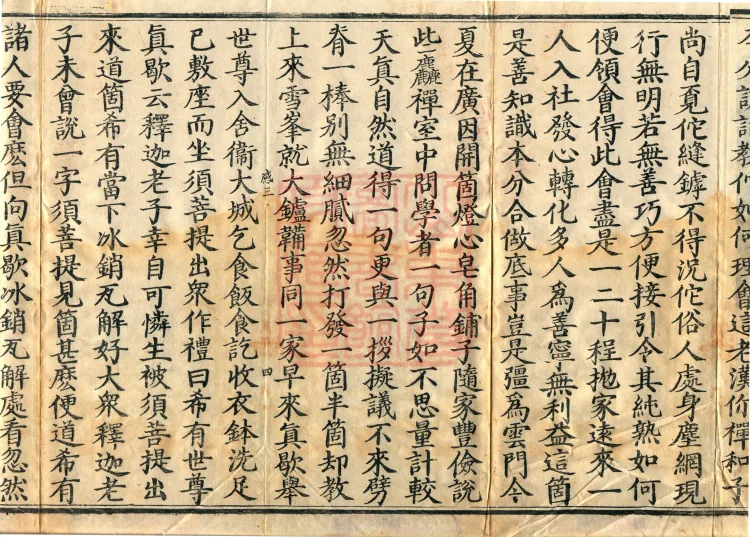 話語教你如何理會這老漢你禪和子
尚自覓佗縫罅不得況佗俗人處身塵網現
行無明若無善巧方便接引令其純熟如何
便領會得此會盡是一二十程拋家遠來一
人入社發心轉化多人爲善寧無利益這箇
是善知識本分合做底事豈是彊爲雲門今
夏在廣因開箇燈心皂角鋪子隨家豐儉說
些麤禪室中問學者一句子如不思量計較
天眞自然道得一句更與一拶擬議不來劈
脊一棒別無細膩忽然打發一箇半箇却教
上來雪峯就大鑪鞴事同一家早來眞歇舉
感三 四
世尊入舍衞大城乞食飯食訖收衣鉢洗足
已敷座而坐須菩提出衆作禮曰希有世尊
眞歇云釋迦老子幸自可憐生被須菩提出
來道箇希有當下冰銷瓦解好大衆釋迦老
子未曾說一字須菩提見箇甚麽便道希有
諸人要會麽但向眞歇冰銷瓦解處看忽然